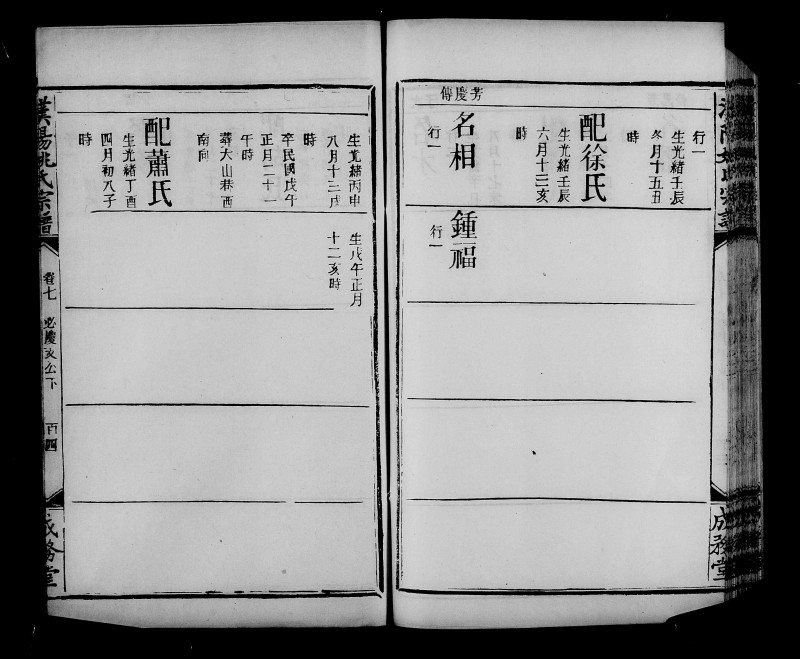 行一
生光緒壬辰
冬月十五丑
時
配徐氏
生光緒壬辰
六月十三亥
時
芳慶傳
名相
行一
鍾福
行一
生光緒丙申
八月十二戌
時
辛民國戊午
正月二十一
午時
葬大山巷西
南向
配蕭氏
生光緒丁酉
四月初八子
時
生戊午正月
十二亥時
漢陽姚氏宗譜
卷七
必慶友公下
百四
成務堂
成務堂